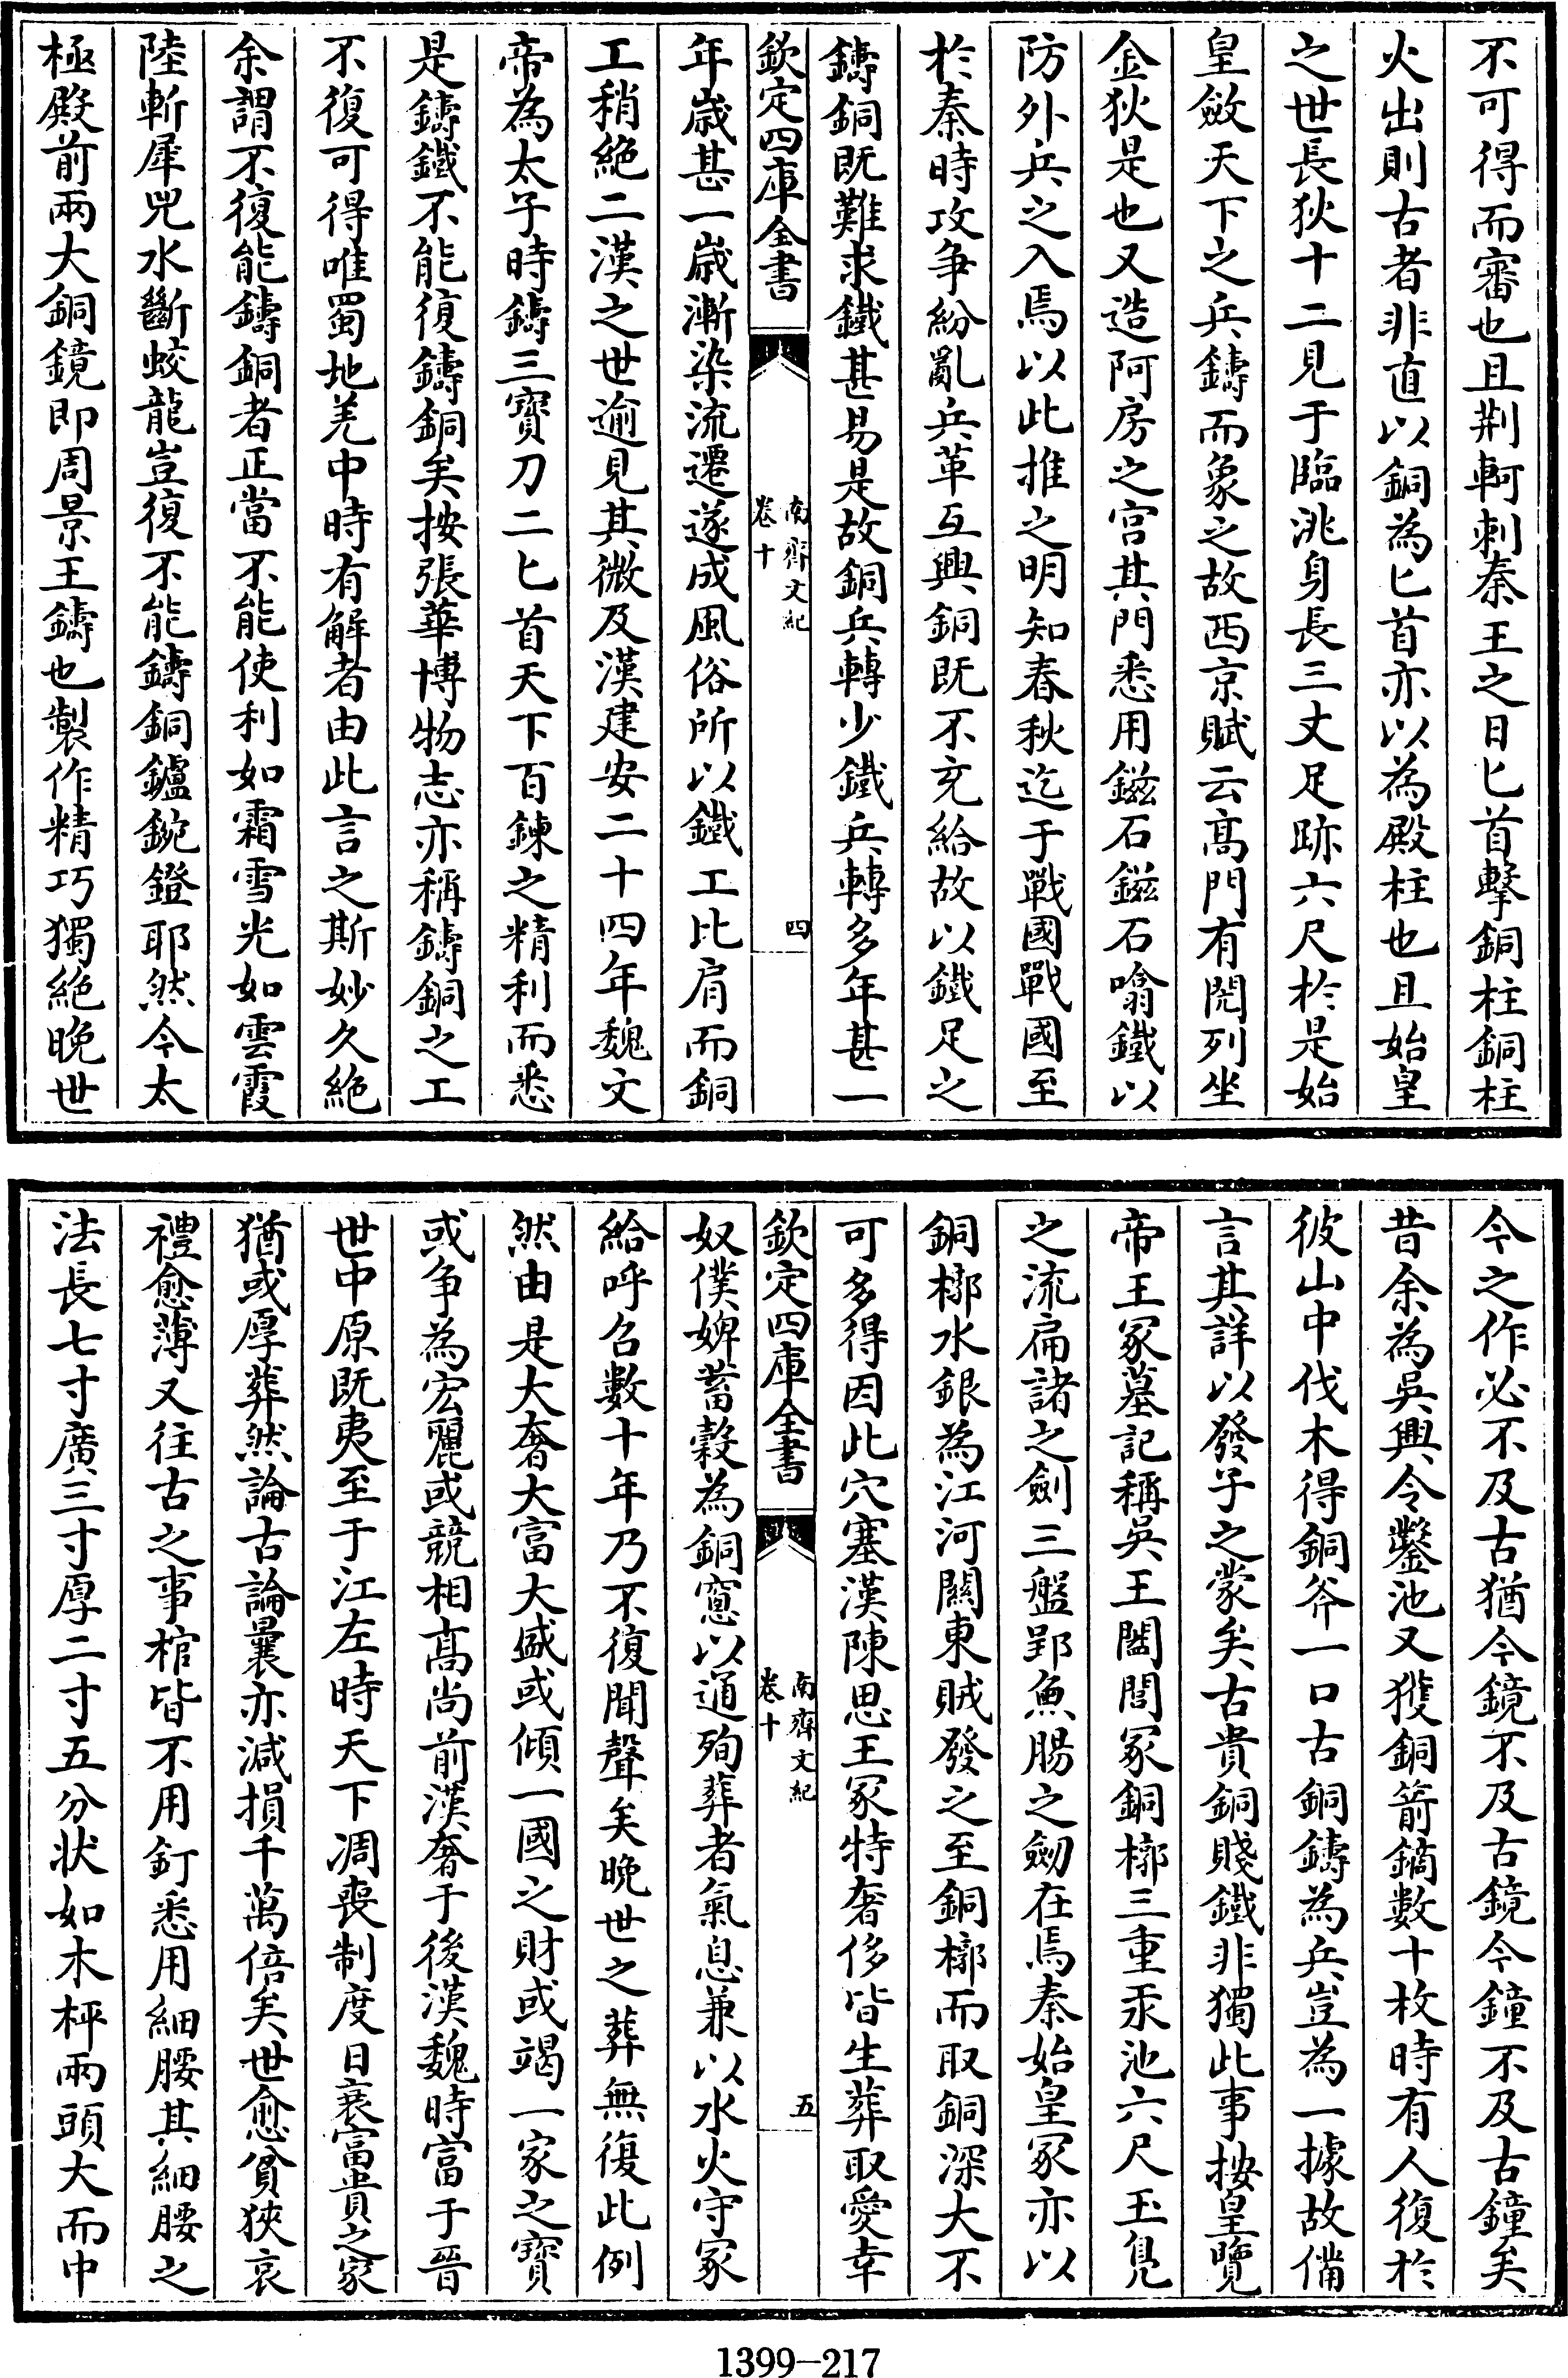 不可得而審也且荆軻刺秦王之日匕首擊銅柱銅柱
火出則古者非直以銅為匕首亦以為殿柱也且始皇
之世長狄十二見于臨洮身長三丈足跡六尺於是始
皇斂天下之兵鑄而象之故西京賦云高門有閌列坐
金狄是也又造阿房之宫其門悉用鎡石鎡石噏鐵以
防外兵之入焉以此推之明知春秋迄于戰國戰國至
於秦時攻争紛亂兵革互興銅既不充給故以鐵足之
鑄銅既難求鐵甚易是故銅兵轉少鐵兵轉多年甚一
欽定四庫全書
南齊文紀
卷十
四
年歲甚一歲漸染流遷遂成風俗所以鐵工比肩而銅
工稍絶二漢之世逾見其微及漢建安二十四年魏文
帝為太子時鑄三寳刀二匕首天下百鍊之精利而悉
是鑄鐵不能復鑄銅矣按張華博物志亦稱鑄銅之工
不復可得唯蜀地羌中時有解者由此言之斯妙久絶
余謂不復能鑄銅者正當不能使利如霜雪光如雲霞
陸斬犀兕水斷蛟龍豈復不能鑄銅鑪鋺鐙耶然今太
極殿前兩大銅鏡即周景王鑄也製作精巧獨絶晚世
今之作必不及古猶今鏡不及古鏡今鐘不及古鐘矣
昔余為吳興令鑿池又獲銅箭鏑數十枚時有人復於
彼山中伐木得銅斧一口古銅鑄為兵豈為一據故備
言其詳以發子之蒙矣古貴銅賤鐵非獨此事按皇覽
帝王冢墓記稱吳王闔閭冢銅槨三重汞池六尺玉鳧
之流扁諸之劍三盤郢魚腸之劒在焉秦始皇冢亦以
銅槨水銀為江河關東賊發之至銅槨而取銅深大不
可多得因此穴塞漢陳思王冢特奢侈皆生葬取愛幸
欽定四庫全書
南齊文紀
卷十
五
奴僕婢蓄穀為銅窻以通殉葬者氣息兼以水火守冢
給呼召數十年乃不復聞聲矣晚世之葬無復此例
然由是大奢大富大盛或傾一國之財或竭一家之寳
或争為宏麗或競相高尚前漢奢于後漢魏時富于晉
世中原既夷至于江左時天下凋喪制度日衰富貴之家
猶或厚葬然論古論曩亦減損千萬倍矣世愈貧狹哀
禮愈薄又往古之事棺皆不用釘悉用細腰其細腰之
法長七寸廣三寸厚二寸五分状如木枰兩頭大而中
1399-217